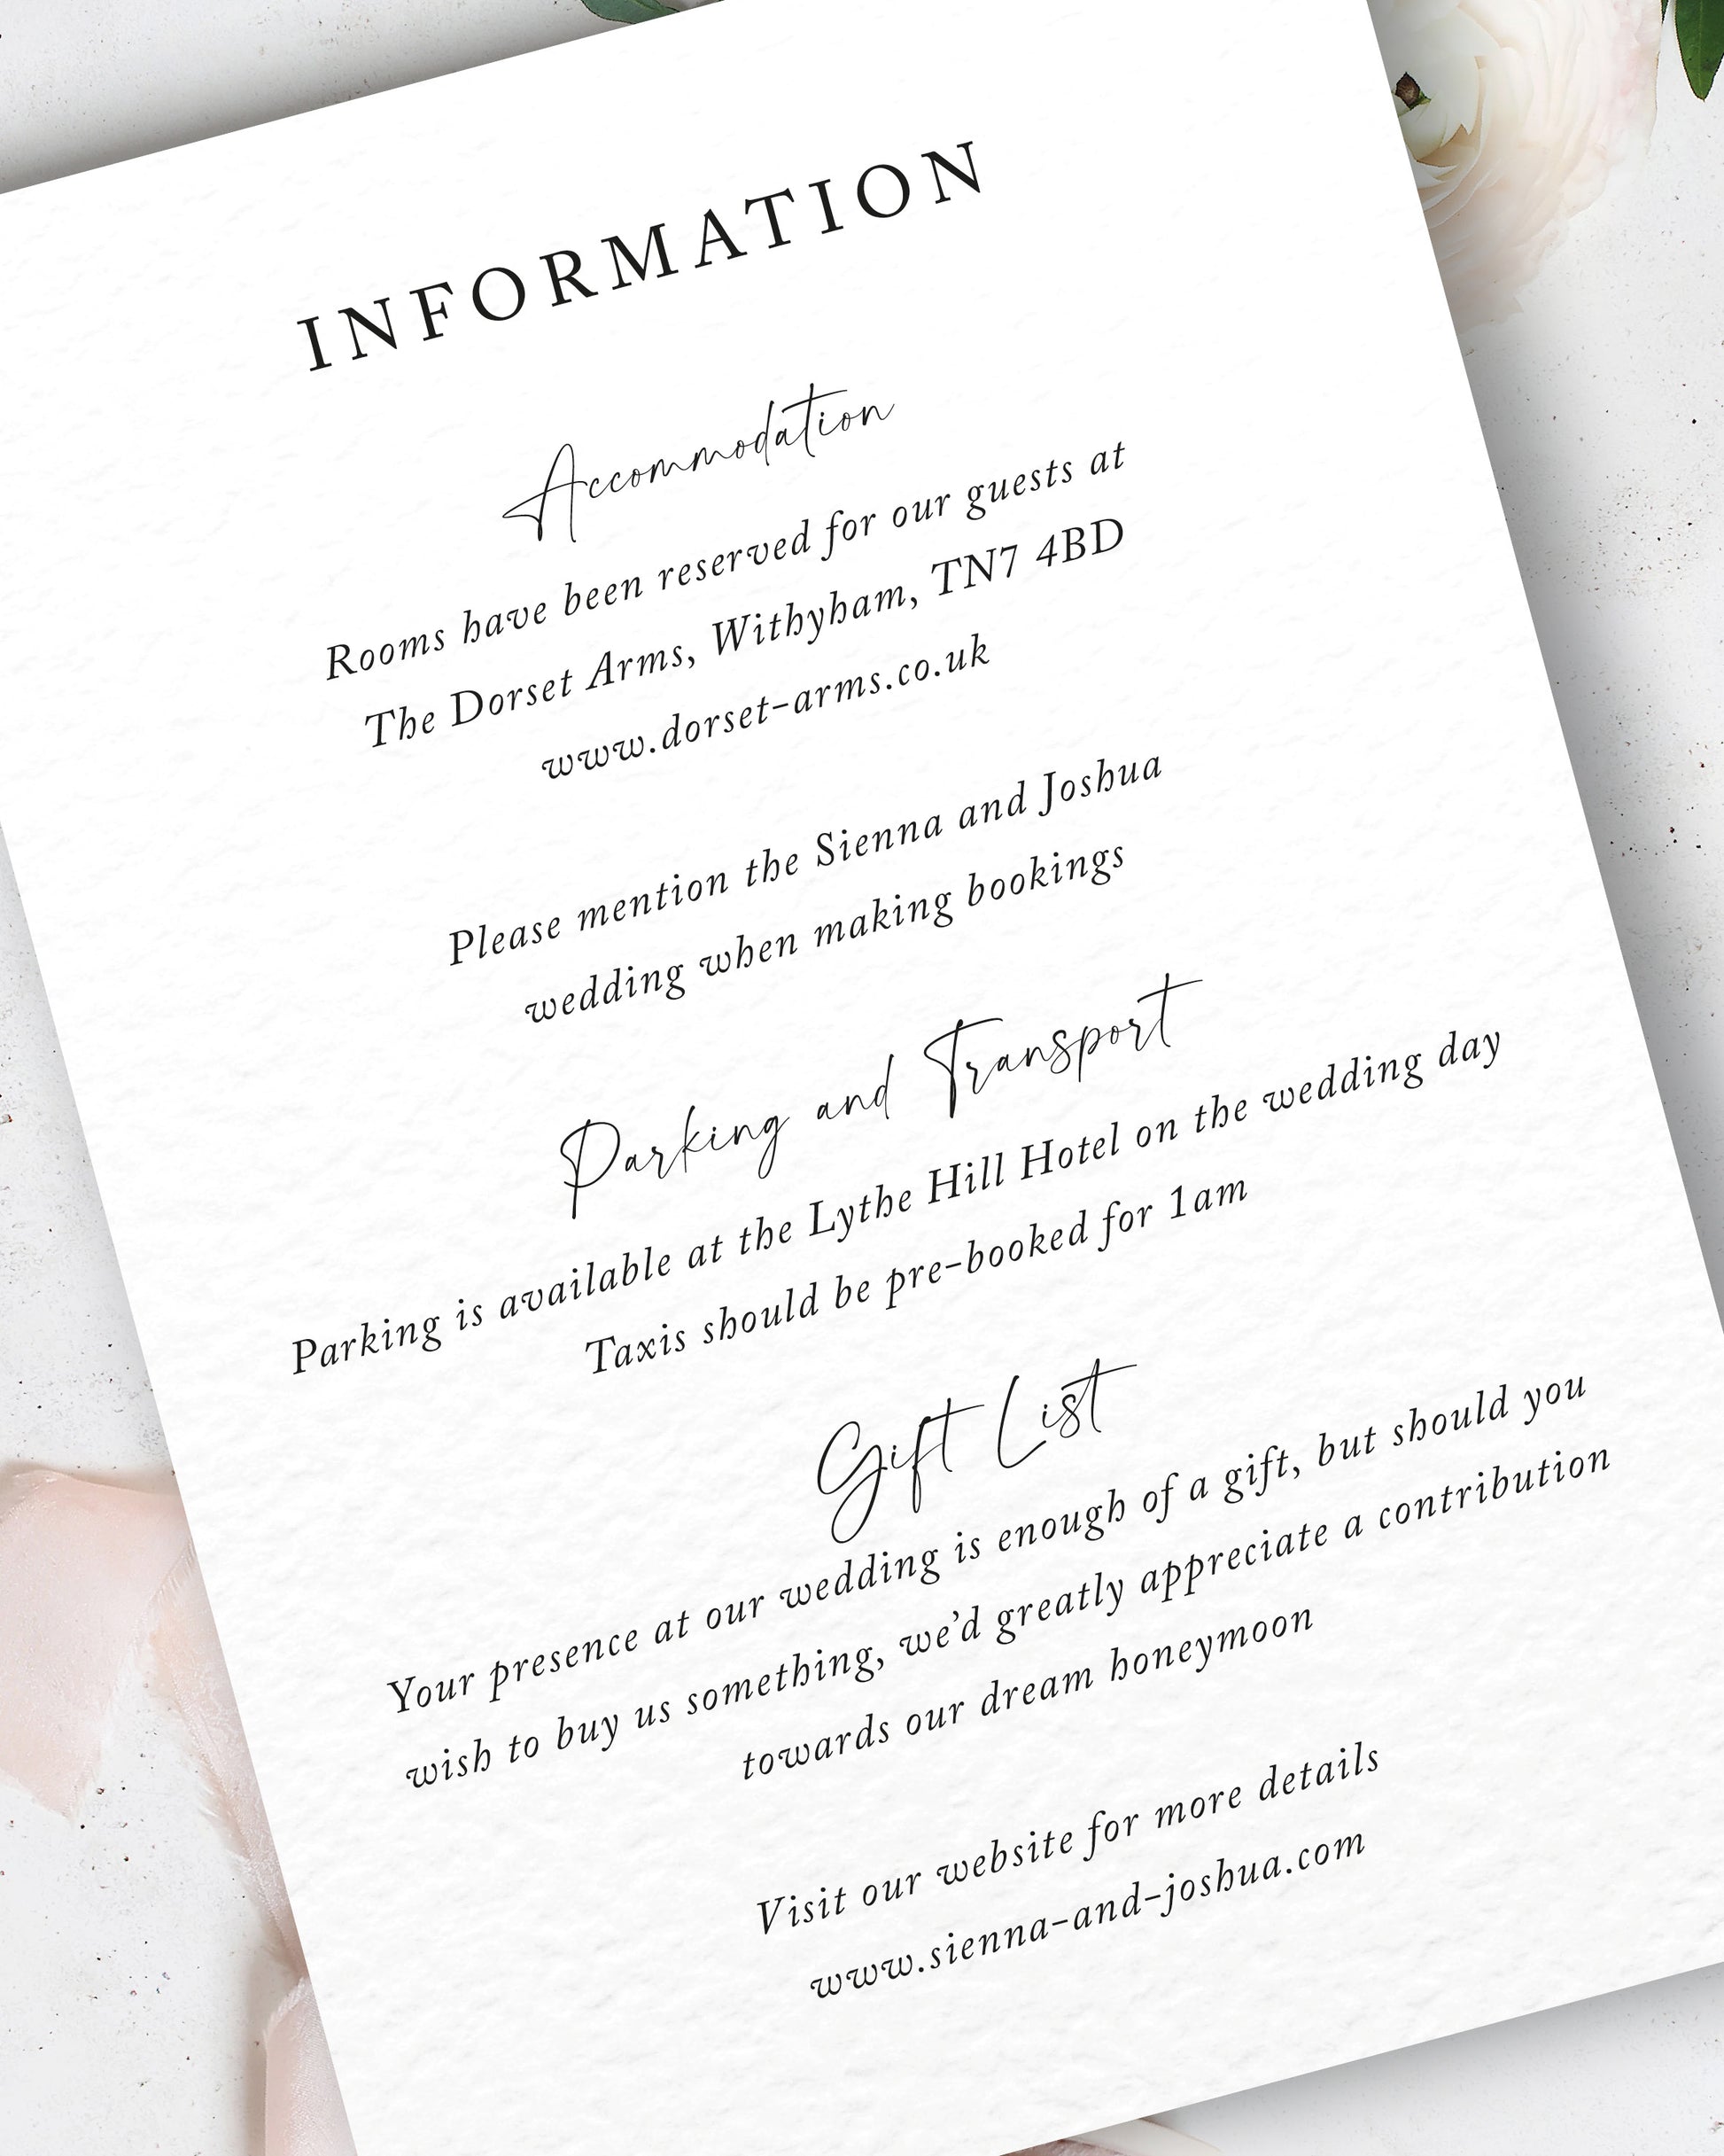 INFORMATION
Accommodation
Rooms have been reserved for our guests at
The Dorset Arms, Withyham, TN7 4BD
www.dorset-arms.co.uk
Please mention the Sienna and Joshua
wedding when making bookings
Parking and Transport
Parking is available at the Lythe Hill Hotel on the wedding day
Taxis should be pre-booked for 1am
Gift List
Your presence at our wedding is enough of a gift, but should you
wish to buy us something, we'd greatly appreciate a contribution
towards our dream honeymoon
Visit our website for more details
www.sienna-and-joshua.com